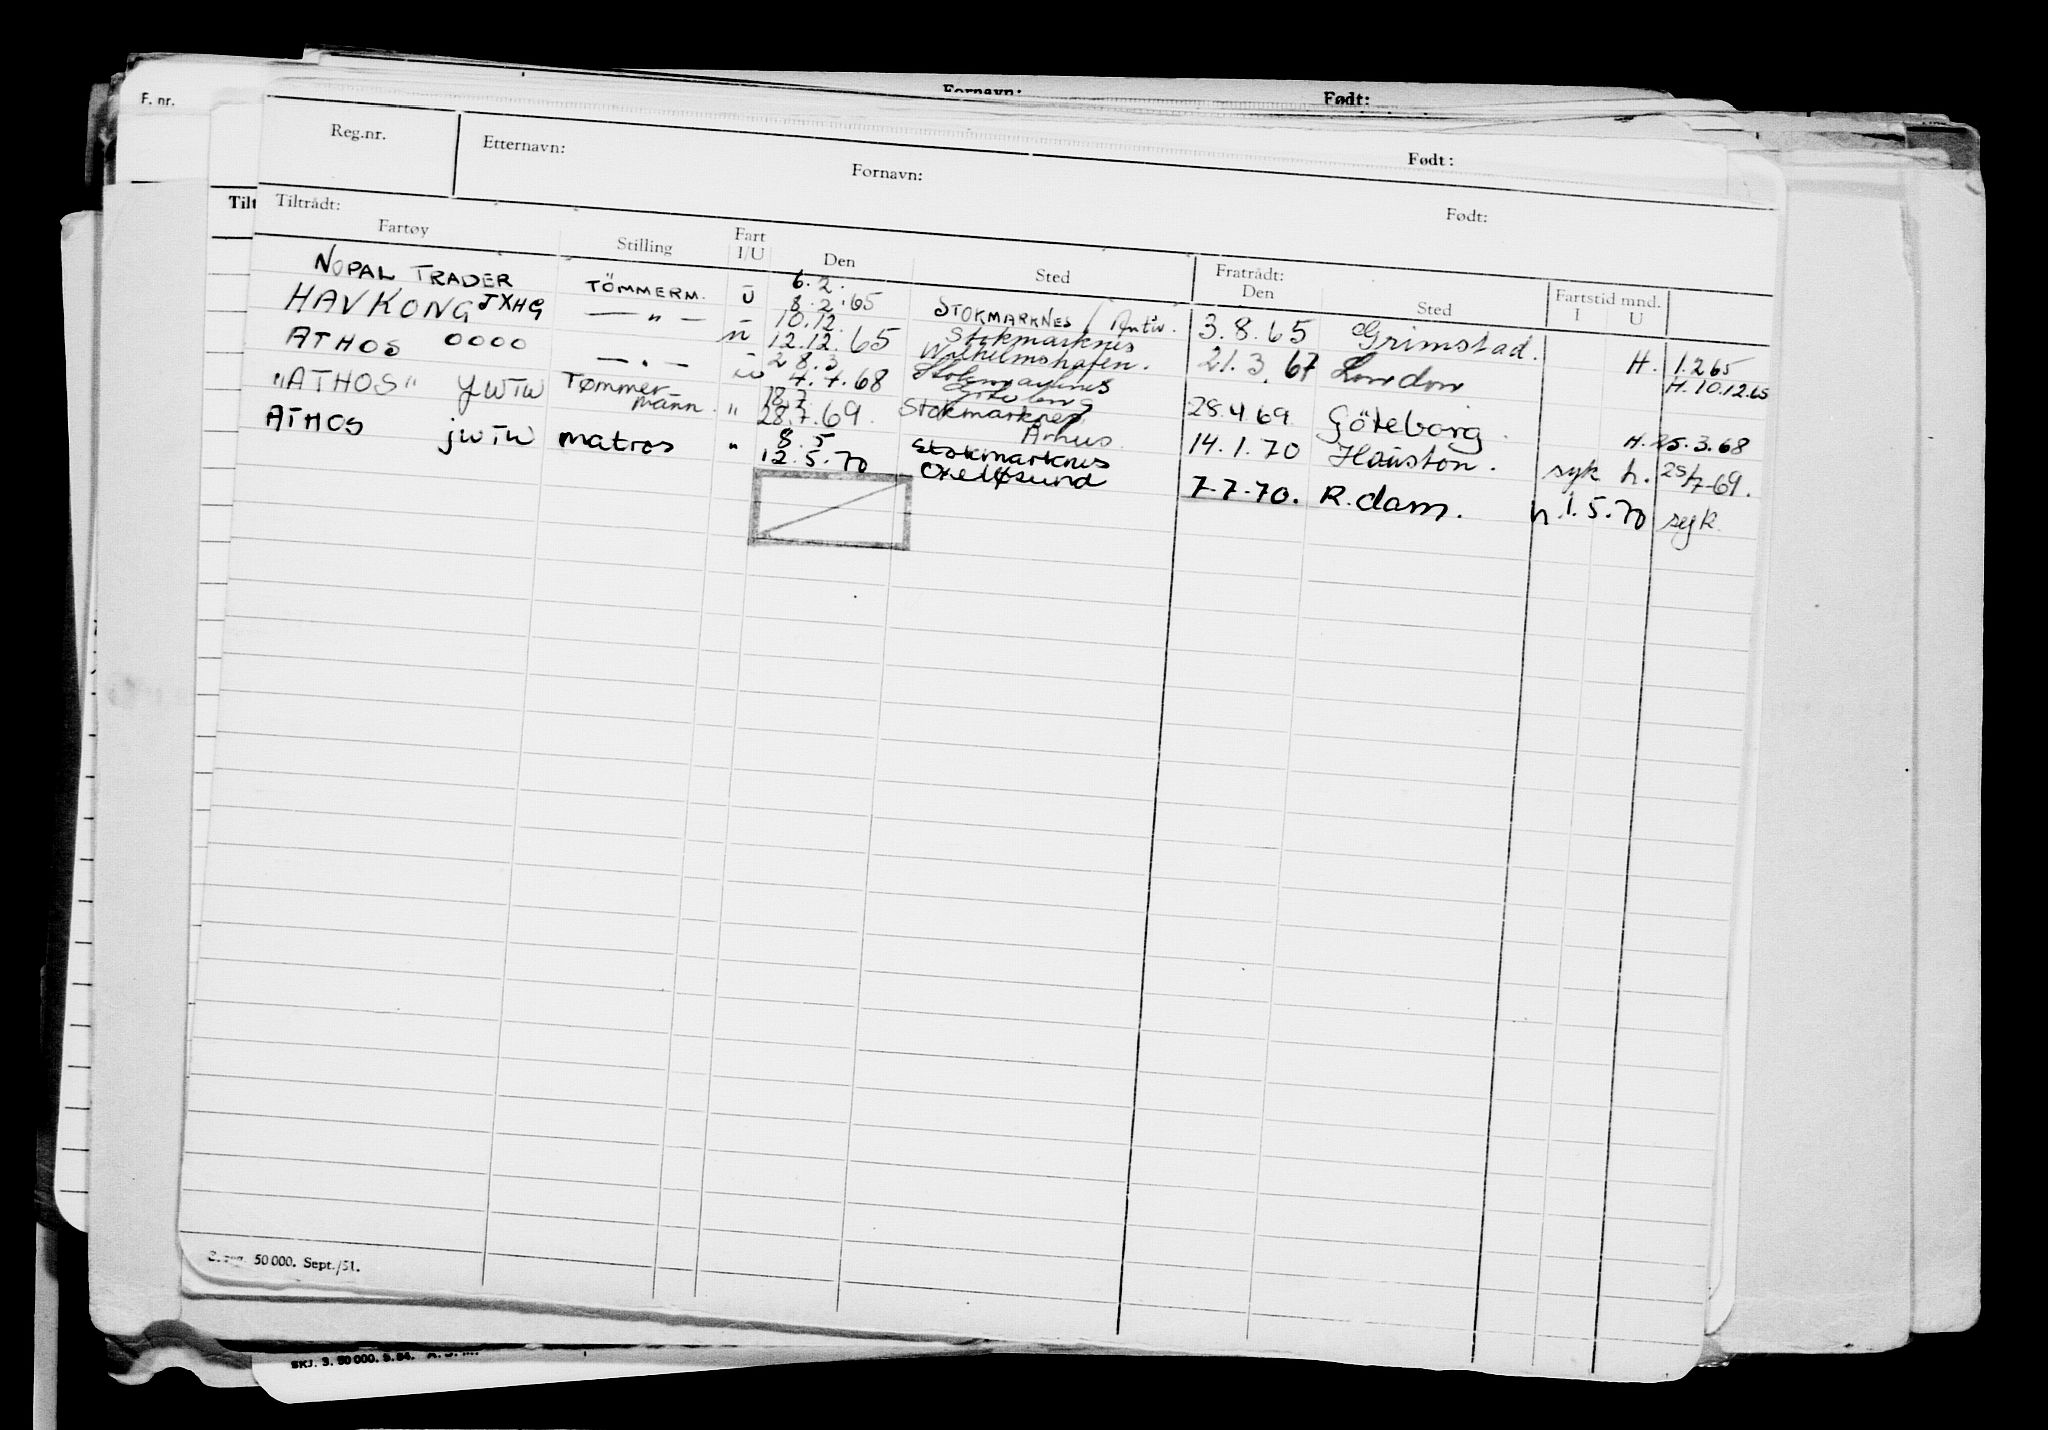 Fornavn: Født:
F. nr.
Født:
Reg.nr. Etternavn: Fornavn: Født:
Tilt
Tiltrådt: Fratrådt: Fartstid mnd.
Fartøy Stilling Fart I/U Den Sted Den Sted I U
NOPAL TRADER TÖMMERM. U 6.2. 8.2.65 STOKMARKNES / Antw. 3.8.65 Grimstad. H. 1.2.65
HAVKONG JXHG — " — 10.12. 12.12.65 Stokmarknes Wilhelmshafen. 21.3.67 London H. 10.12.65
ATHOS OOOO — " — 28.3 4.4.68 Göteborg 28.4.69 Göteborg. H. 25.3.68
"ATHOS" JWTW Tømmermann. " 18.7 28.7.69. Stokmarknes Århus. 14.1.70 Houston. syk h. 25/7-69.
ATHOS jWTW matros " 8.5 12.5.70 Stokmarknes Oxeløsund 7-7-70. R.dam. h. 1.5.70 syk.
50 000. Sept./51.
SKJ. 3. 50 000. 9.54.